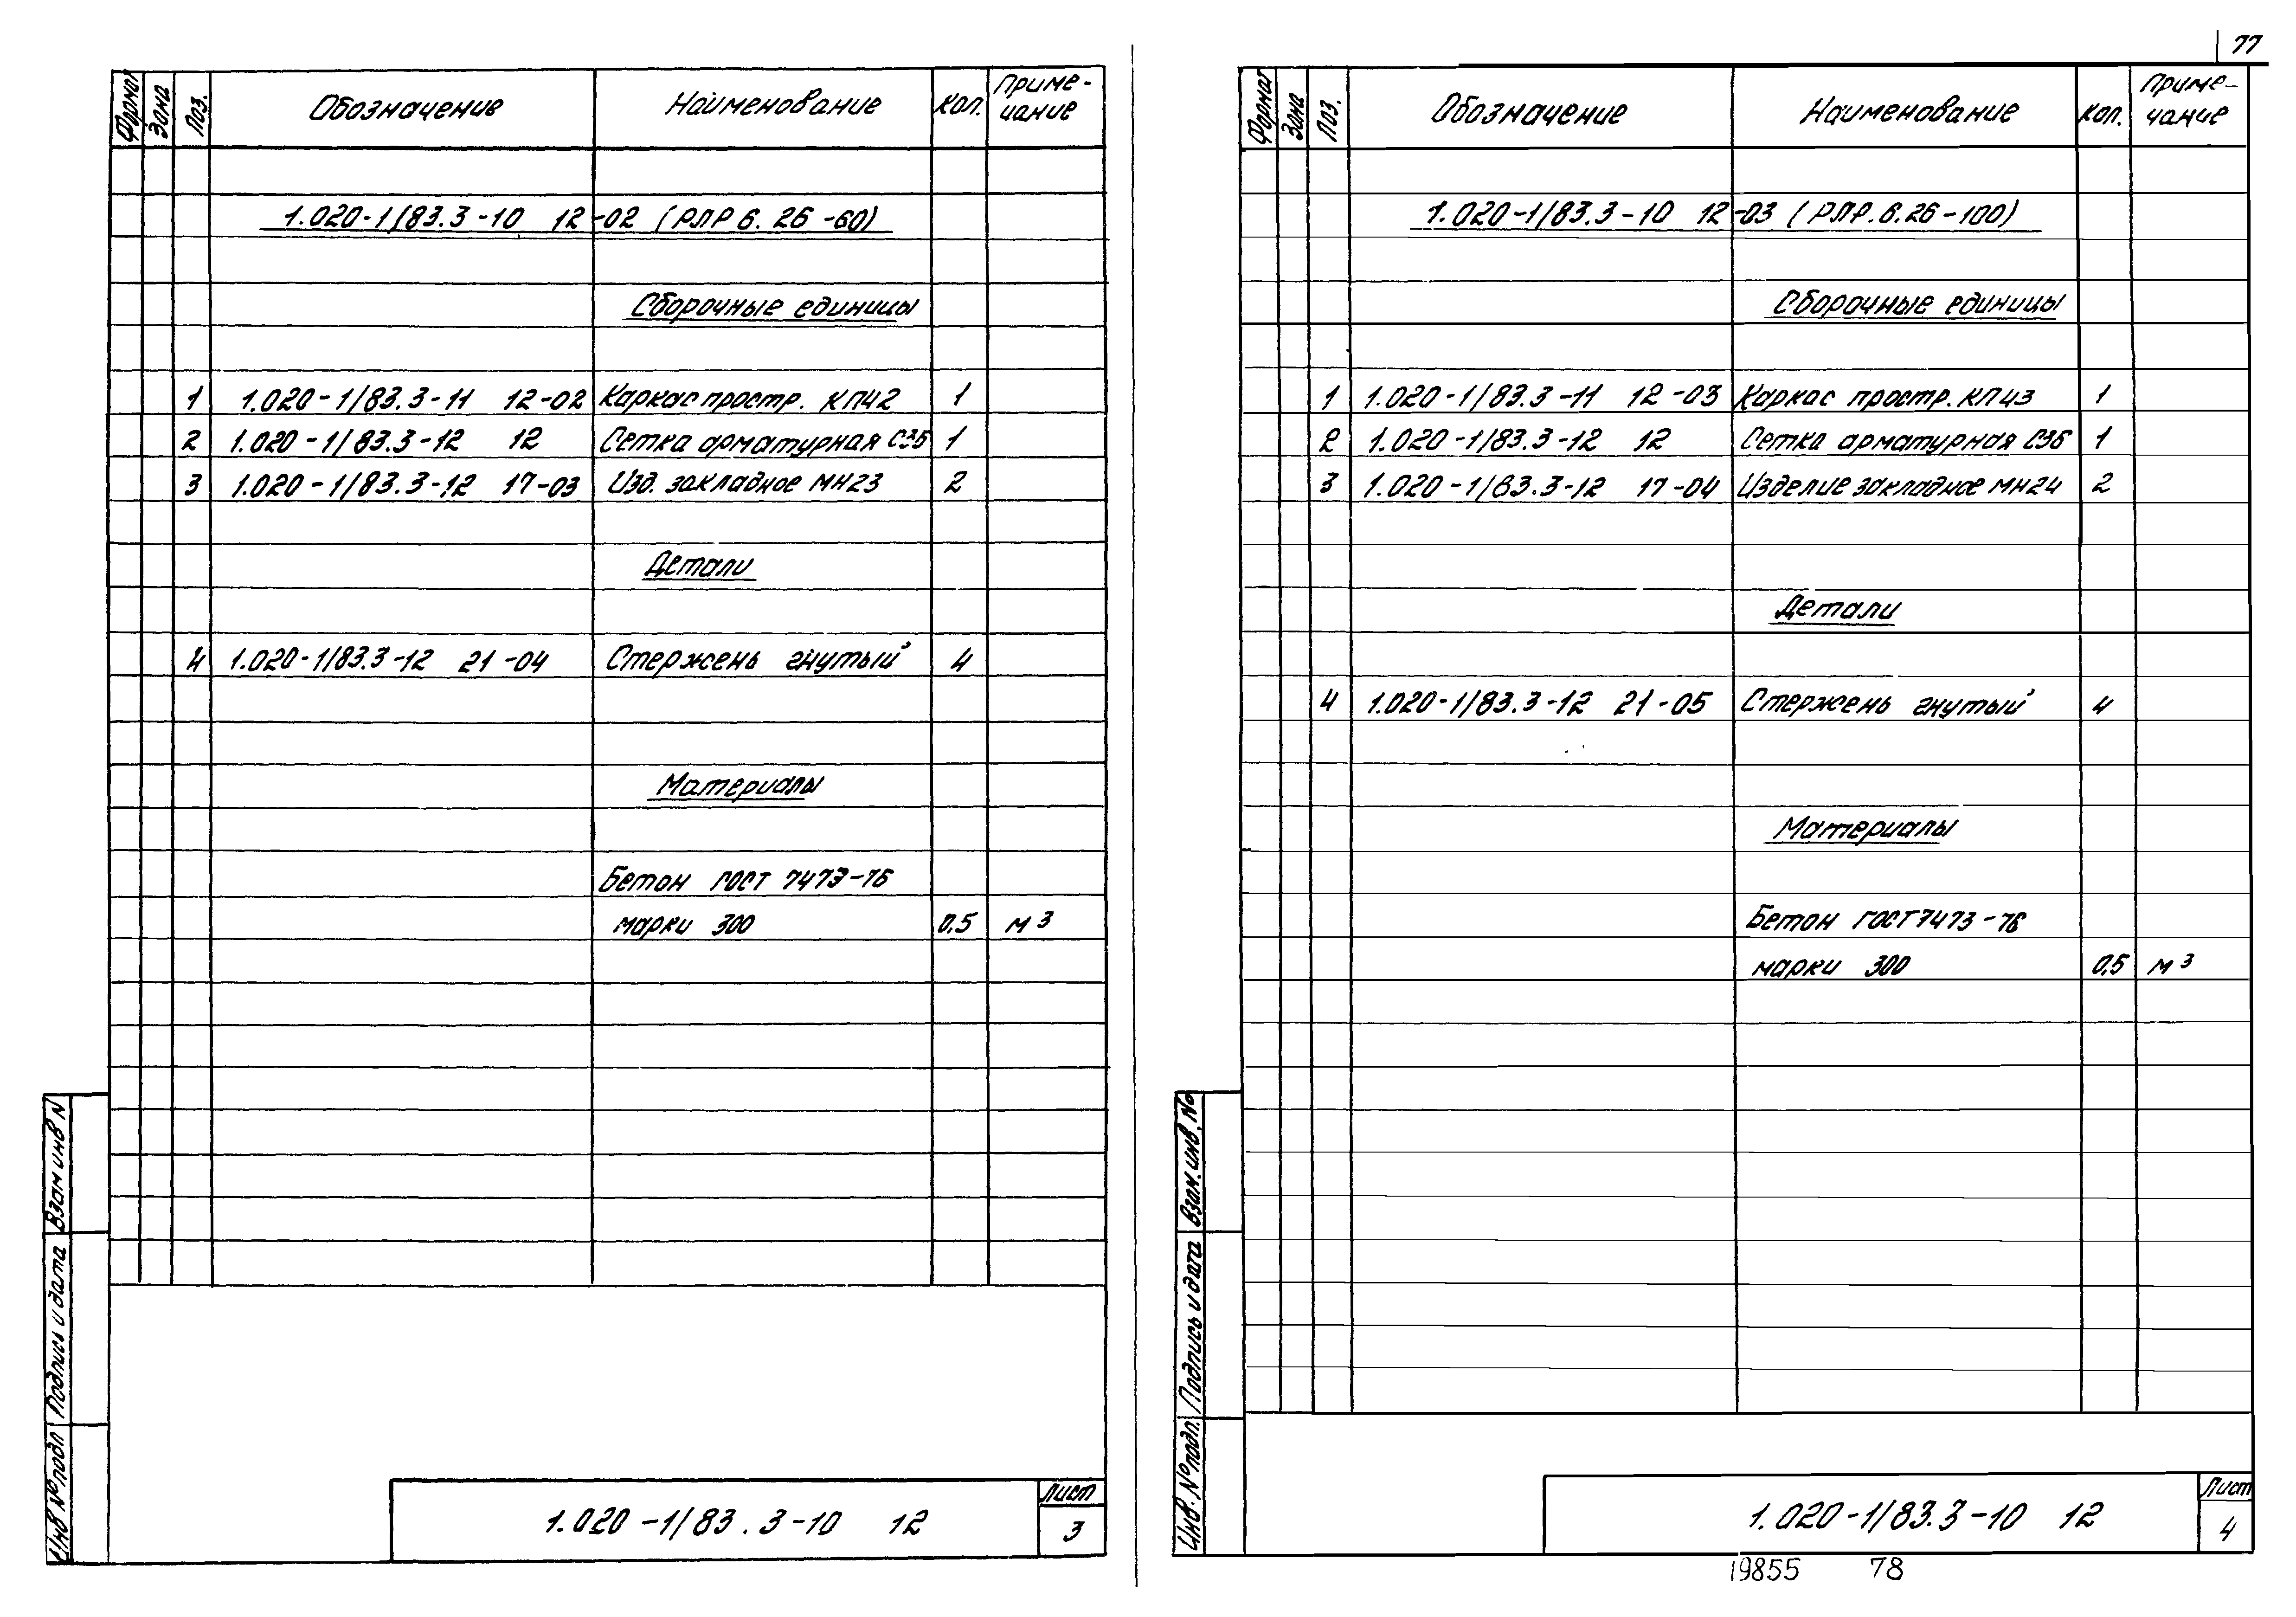 77
Формат Зона Поз. Обозначение Наименование Кол. Приме-
чание
1.020-1/83.3-10 12-02 (РЛР 6.26-60)
Сборочные единицы
1 1.020-1/83.3-11 12-02 Каркас простр. КП42 1
2 1.020-1/83.3-12 12 Сетка арматурная С36 1
3 1.020-1/83.3-12 17-03 Изд. закладное МН23 2
Детали
4 1.020-1/83.3-12 21-04 Стержень гнутый 4
Материалы
Бетон ГОСТ 7473-76
марки 300 0.5 м3
Инв № подл Подпись и дата Взам инв N
1.020-1/83.3-10 12
Лист
3
Формат Зона Поз. Обозначение Наименование Кол. Приме-
чание
1.020-1/83.3-10 12-03 (РЛР.6.26-100)
Сборочные единицы
1 1.020-1/83.3-11 12-03 Каркас простр. КП43 1
2 1.020-1/83.3-12 12 Сетка арматурная С36 1
3 1.020-1/83.3-12 17-04 Изделие закладное МН24 2
Детали
4 1.020-1/83.3-12 21-05 Стержень гнутый 4
Материалы
Бетон ГОСТ 7473-76
марки 300 0,5 м3
Инв. № подл. Подпись и дата Взам. инв. №
1.020-1/83.3-10 12
Лист
4
19855 78